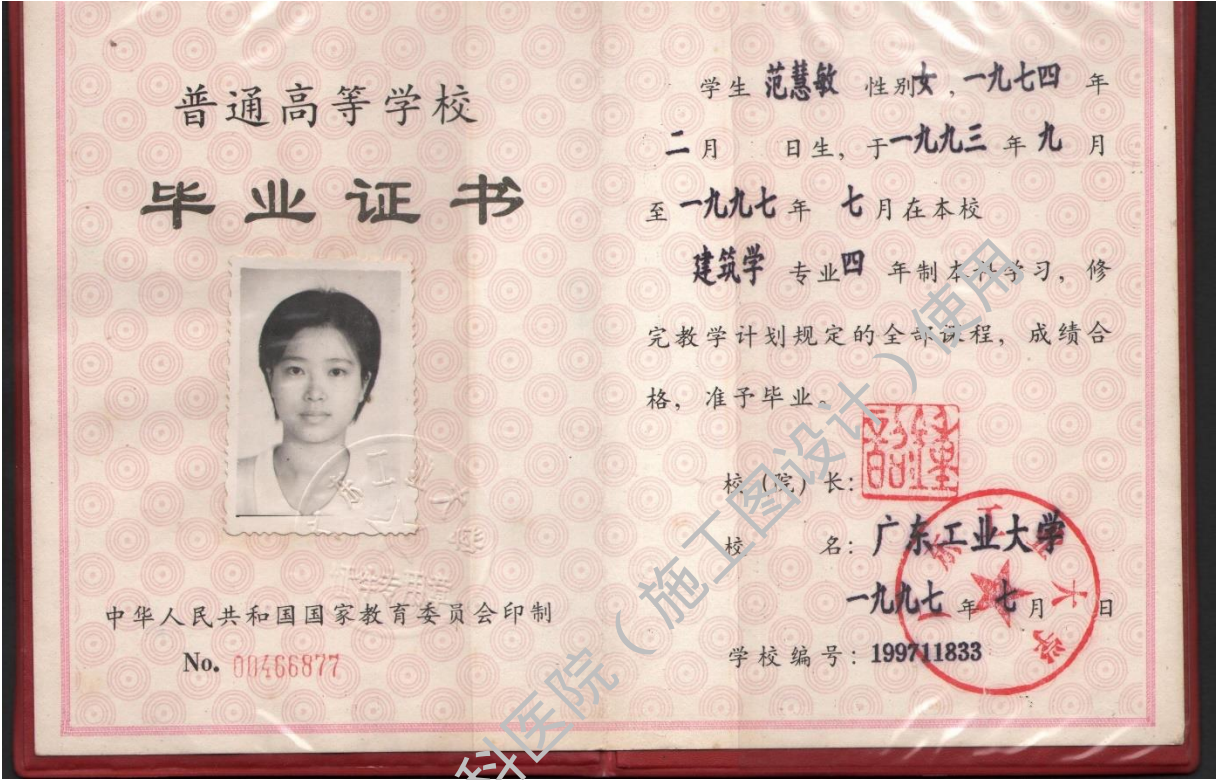 普通高等学校
毕业证书
中华人民共和国国家教育委员会印制
No. 00466877
学生 范慧敏 性别女，一九七四 年
二 月 日生，于一九九三 年 九 月
至 一九九七 年 七 月在本校
建筑学 专业四 年制本科学习，修
完教学计划规定的全部课程，成绩合
格，准予毕业。
校（院）长：
校 名：广东工业大学
一九九七 年 七 月 日
学校编号：199711833
科医院（施工图设计）使用